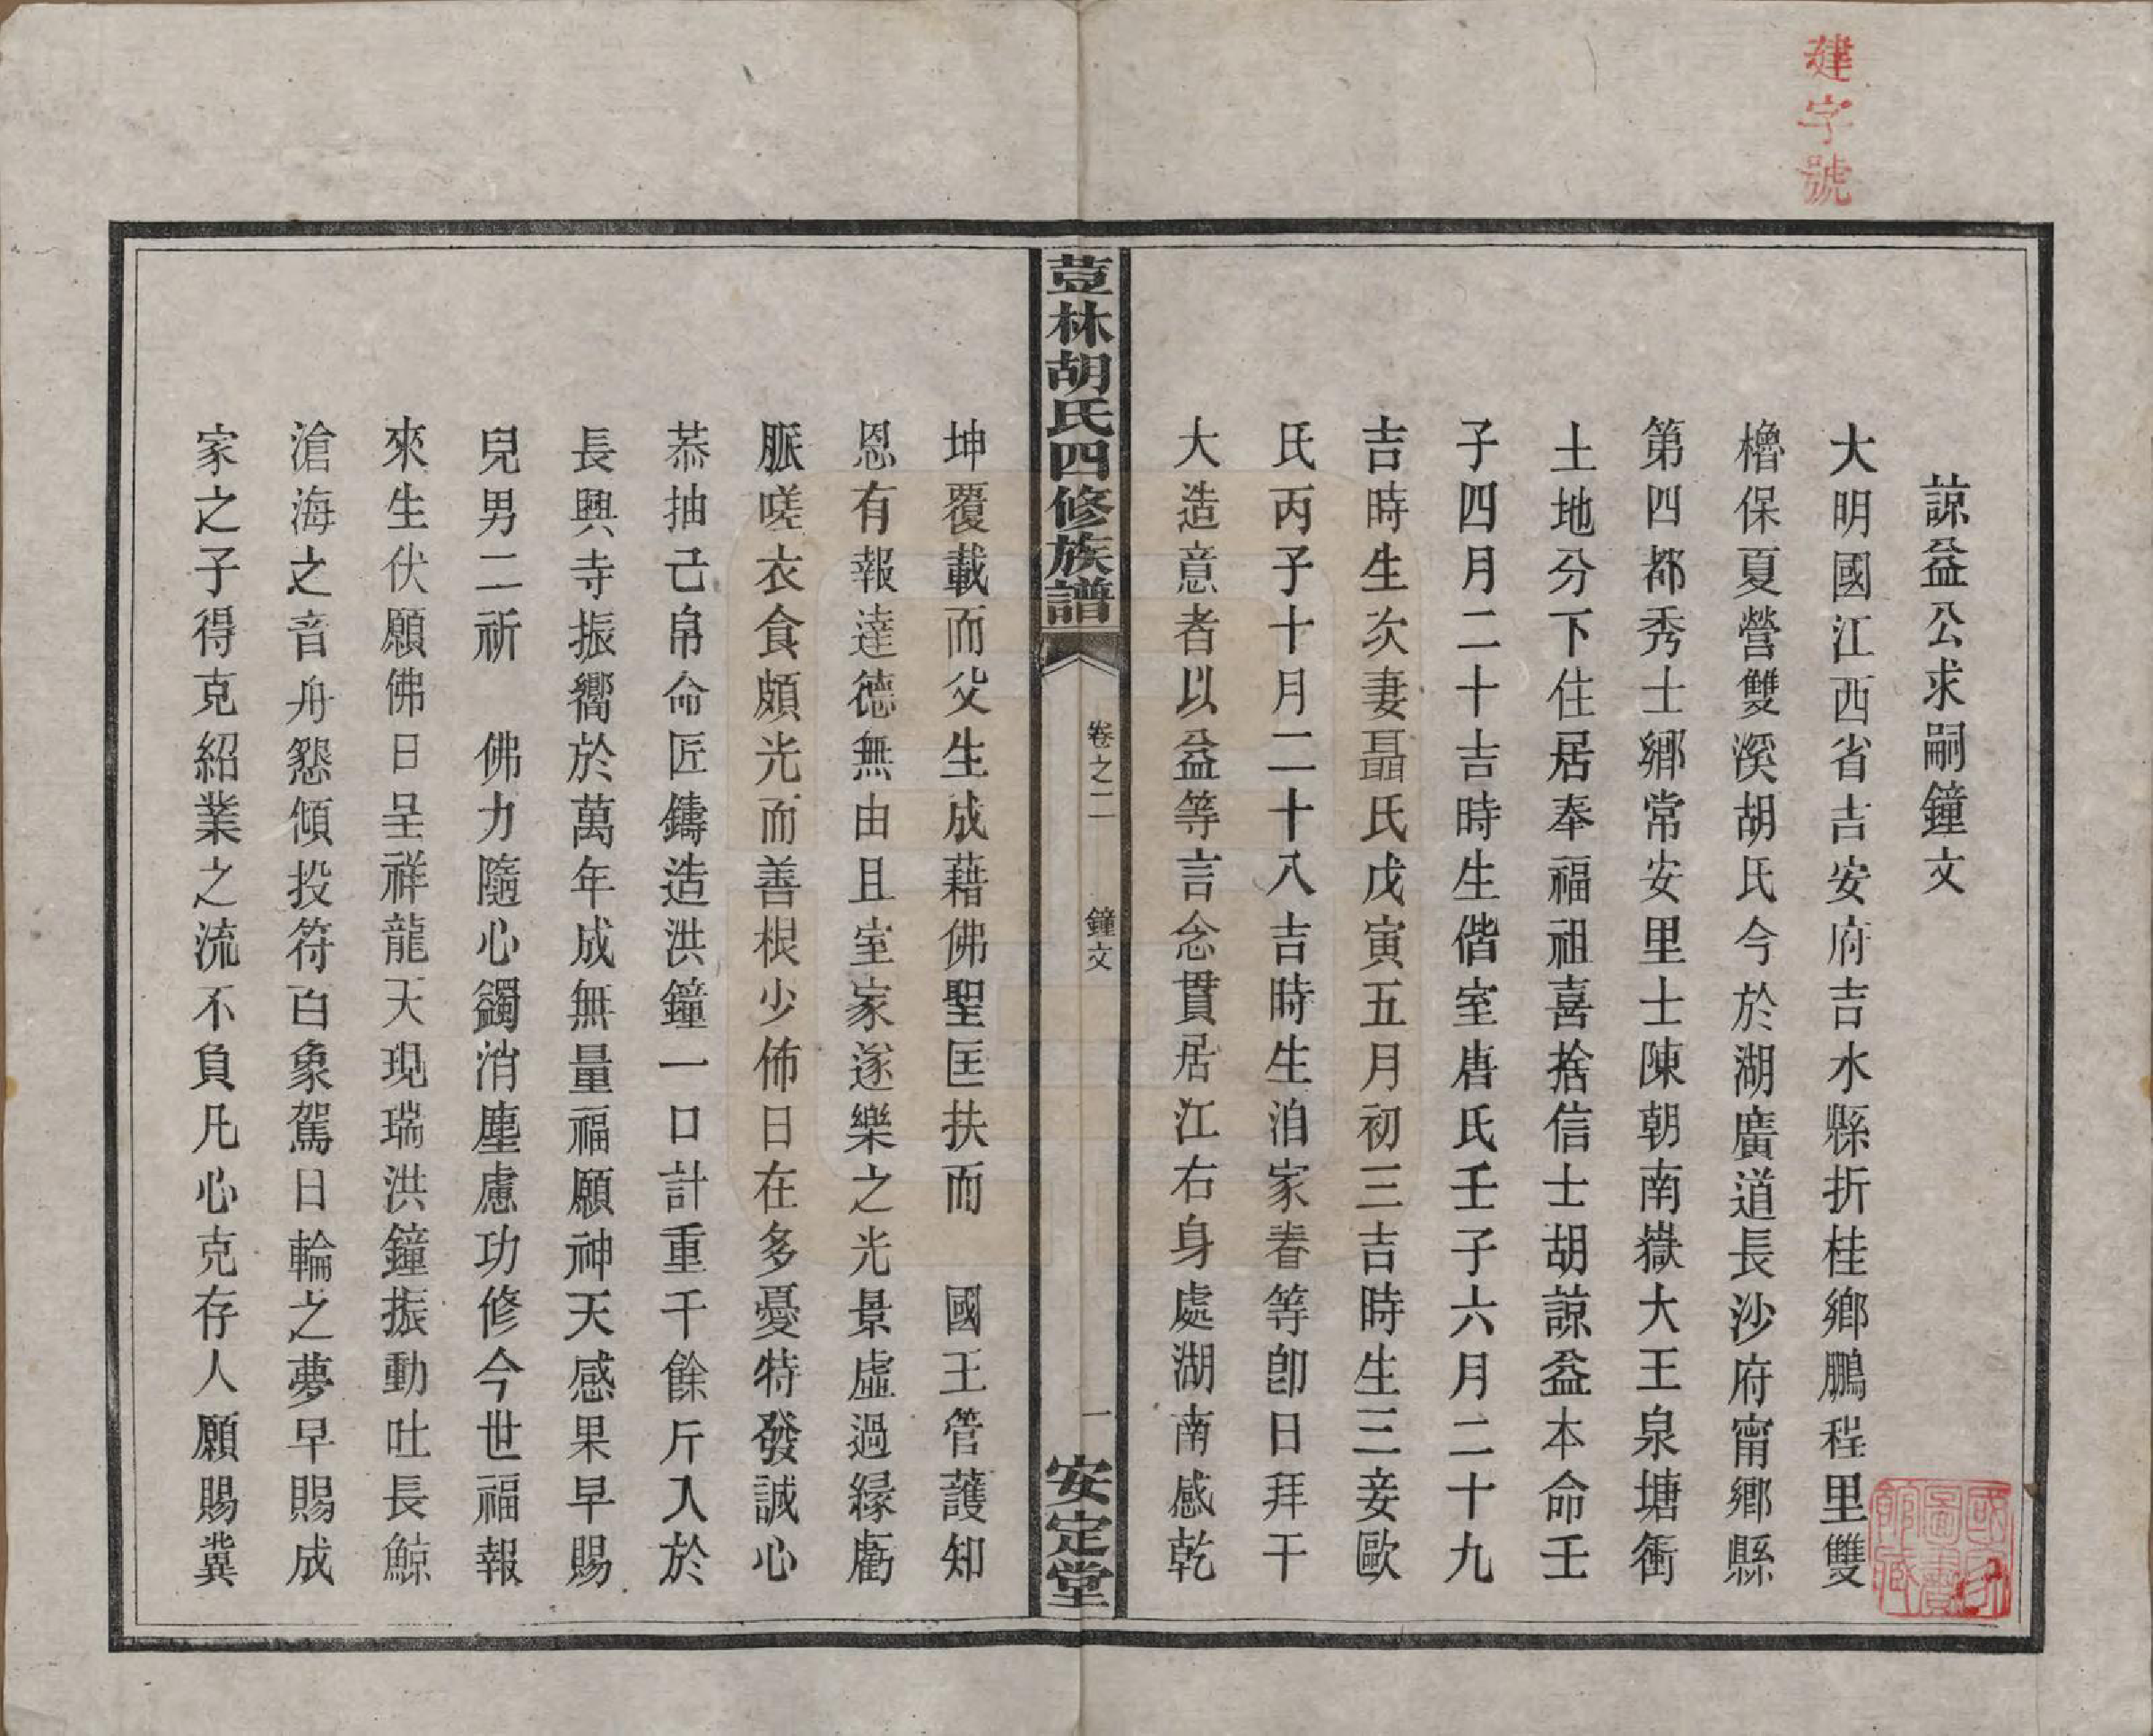 建字號
諒益公求嗣鐘文
大明國江西省吉安府吉水縣折桂鄉鵬程里雙
櫓保夏營雙溪胡氏今於湖廣道長沙府甯鄉縣
第四都秀士鄉常安里士陳朝南嶽大王泉塘衝
土地分下住居奉福祖喜捨信士胡諒益本命壬
子四月二十吉時生偕室唐氏壬子六月二十九
吉時生次妻聶氏戊寅五月初三吉時生三妾歐
氏丙子十月二十八吉時生洎家眷等卽日拜干
大造意者以益等言念貫居江右身處湖南感乾
荳林胡氏四修族譜
卷之二 鐘文
一
安定堂
坤覆載而父生成藉佛聖匡扶而 國王管護知
恩有報達德無由且室家遂樂之光景虛過緣虧
脈嗟衣食頗光而善根少佈日在多憂特發誠心
恭抽己帛命匠鑄造洪鐘一口計重千餘斤入於
長興寺振嚮於萬年成無量福願神天感果早賜
兒男二祈 佛力隨心蠲消塵慮功修今世福報
來生伏願佛日呈祥龍天現瑞洪鐘振動吐長鯨
滄海之音舟愆傾投符白象駕日輪之夢早賜成
家之子得克紹業之流不負凡心克存人願賜糞
國家圖書館藏